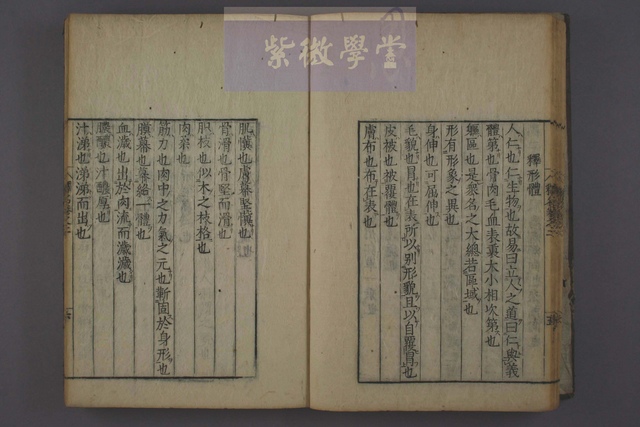 紫微學堂
釋形體
人仁也仁生物也故易曰立人之道曰仁與義
體第也骨肉毛血表裏大小相次第也
軀區也是衆名之大總若區域也
形有形象之異也
身伸也可屈伸也
毛貌也冒也在表所以別形貌且以自覆冒也
皮被也被覆體也
膚布也布在表也
肌懻也膚幕堅懻也
骨滑也骨堅而滑也
胑枝也似木之枝格也
肉柔也
筋力也肉中之力氣之元也靳固於身形也
膜幕也幕絡一體也
血濊也出於肉流而濊濊也
膿醲也汁醲厚也
汁涕也涕涕而出也